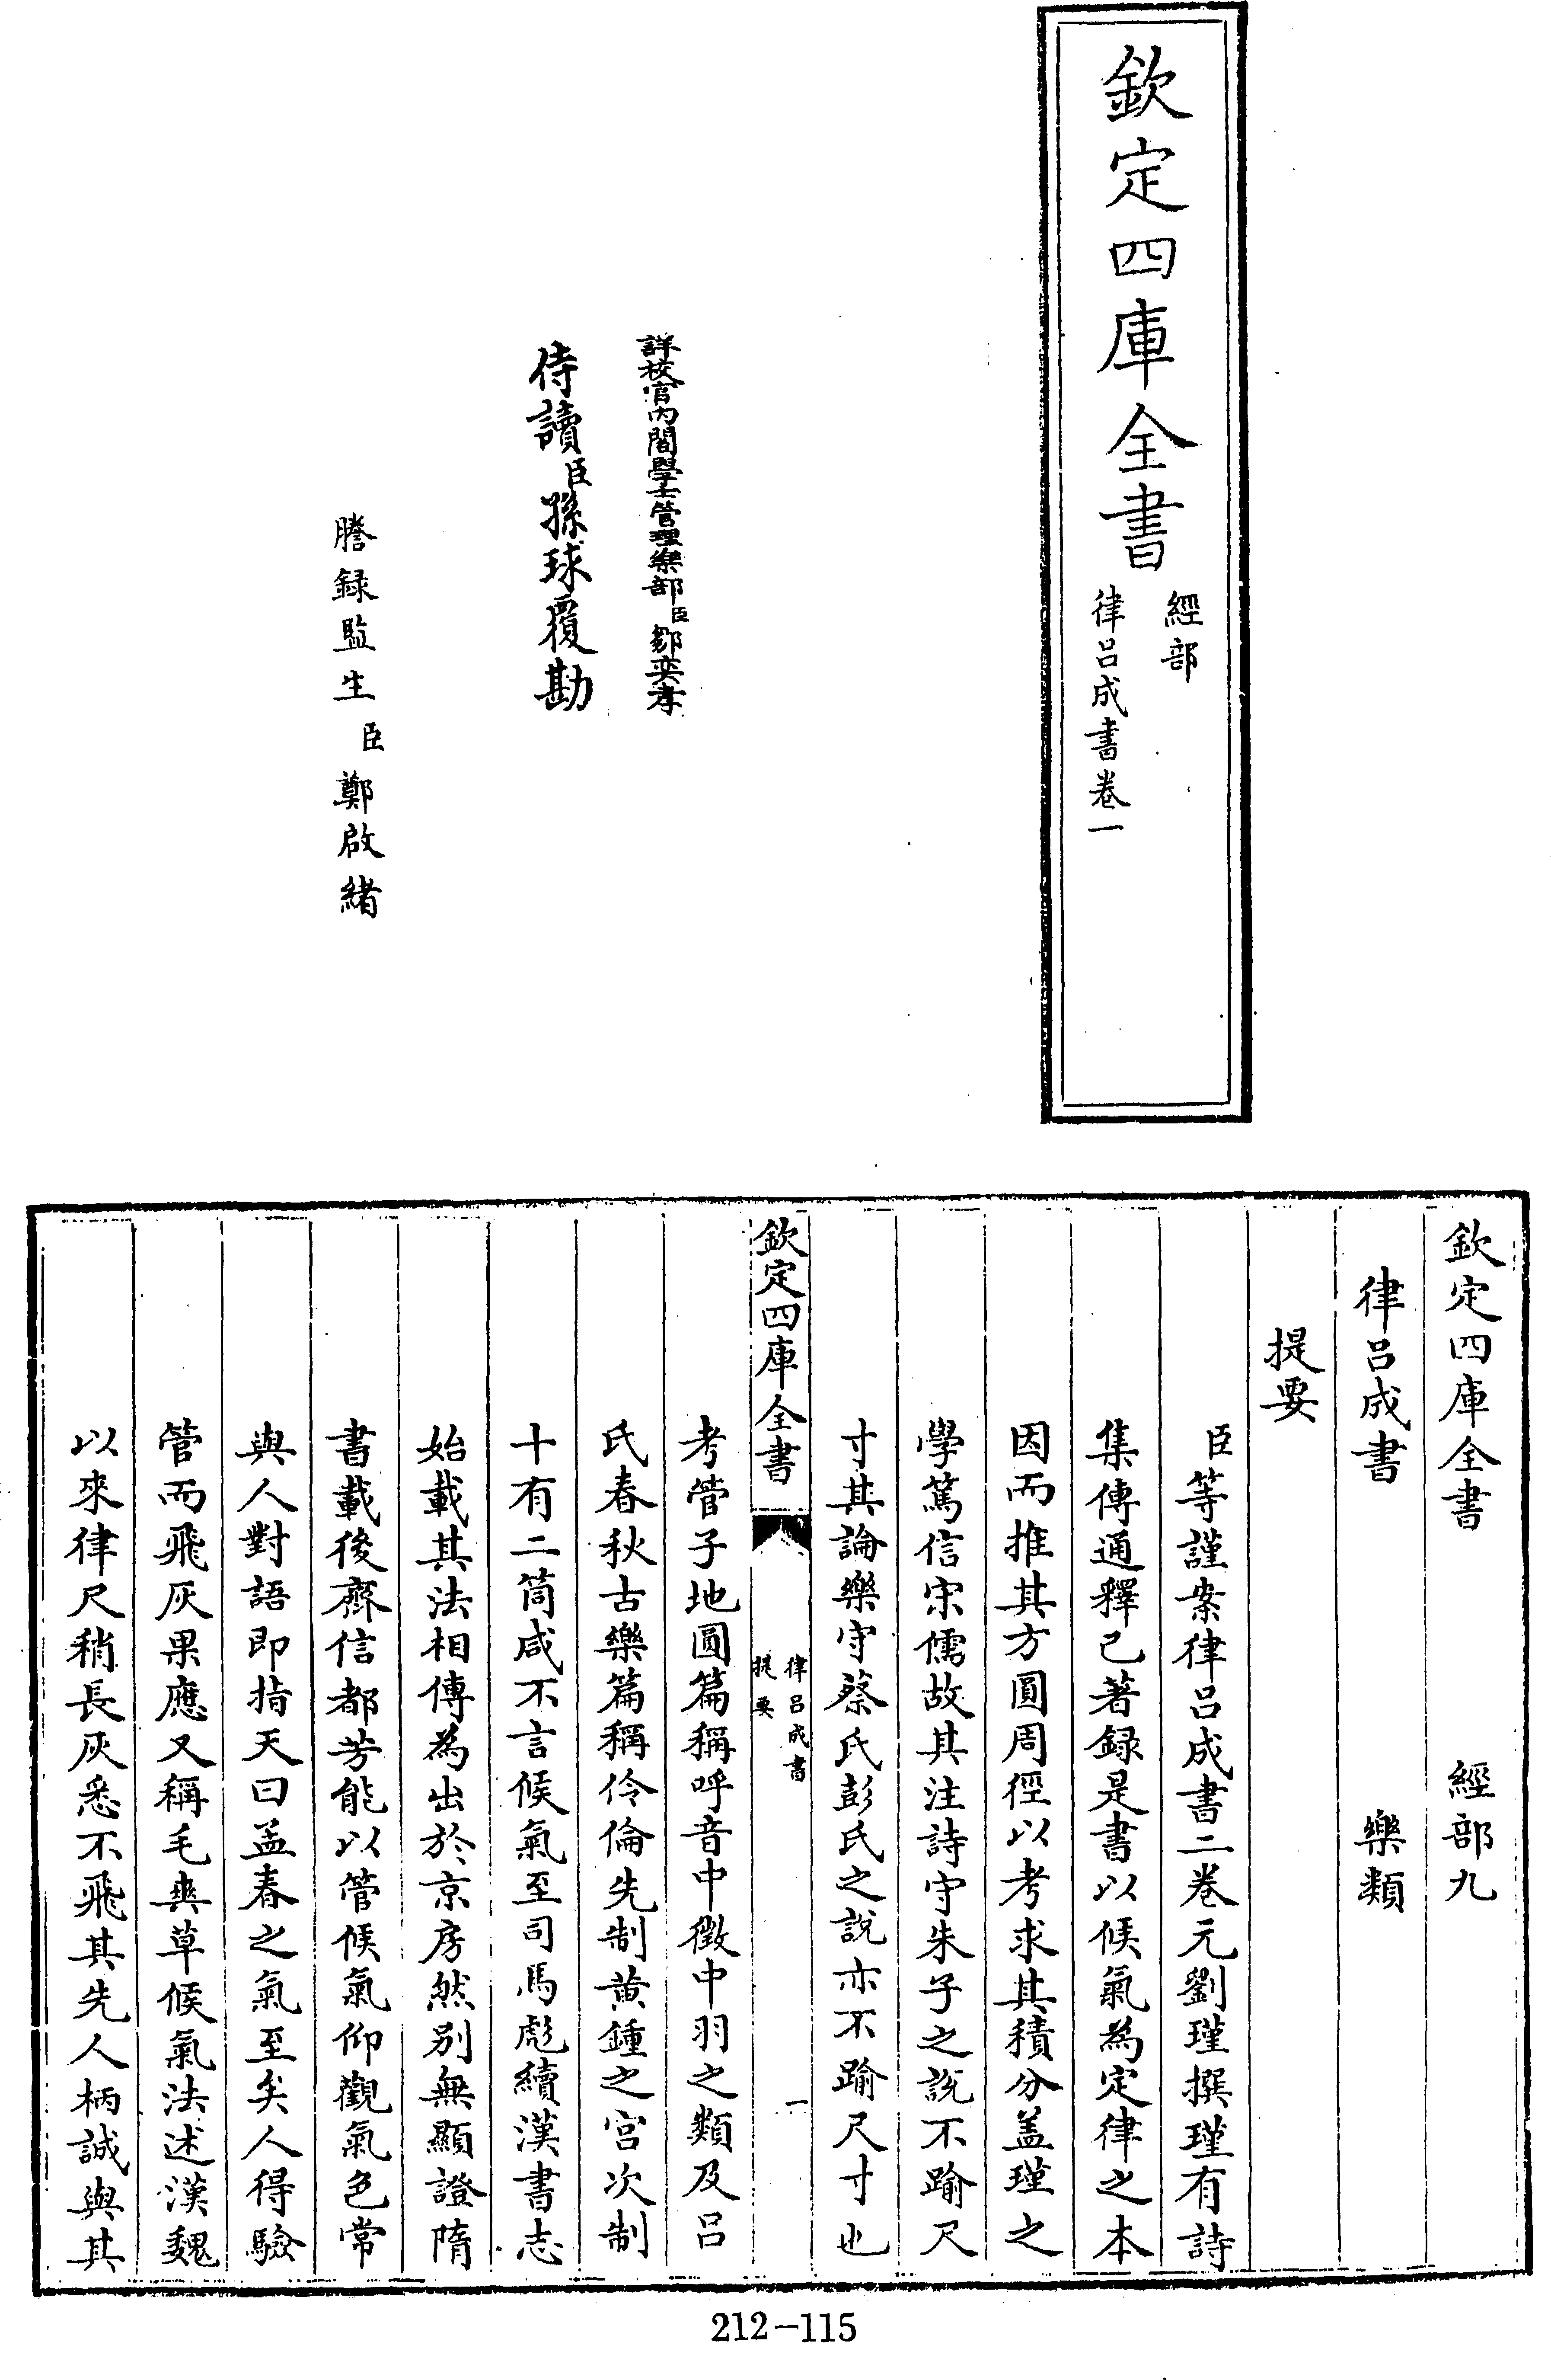 欽定四庫全書
經部
律呂成書卷一
詳校官內閣學士管理樂部臣鄒奕孝
侍讀臣孫球覆勘
謄録監生臣鄭啟緒
欽定四庫全書 經部九
律呂成書 樂類
提要
臣等謹案律呂成書二卷元劉瑾撰瑾有詩
集傳通釋已著録是書以候氣為定律之本
因而推其方圓周徑以考求其積分盖瑾之
學篤信宋儒故其注詩守朱子之說不踰尺
寸其論樂守蔡氏彭氏之說亦不踰尺寸也
欽定四庫全書
律呂成書
提要
一
考管子地圓篇稱呼音中徵中羽之類及呂
氏春秋古樂篇稱伶倫先制黃鍾之宮次制
十有二筒咸不言候氣至司馬彪續漢書志
始載其法相傳為出於京房然別無顯證隋
書載後齊信都芳能以管候氣仰觀氣色常
與人對語即指天曰孟春之氣至矣人得驗
管而飛灰果應又稱毛爽草候氣法述漢魏
以來律尺稍長灰悉不飛其先人柄誠與其
212-115